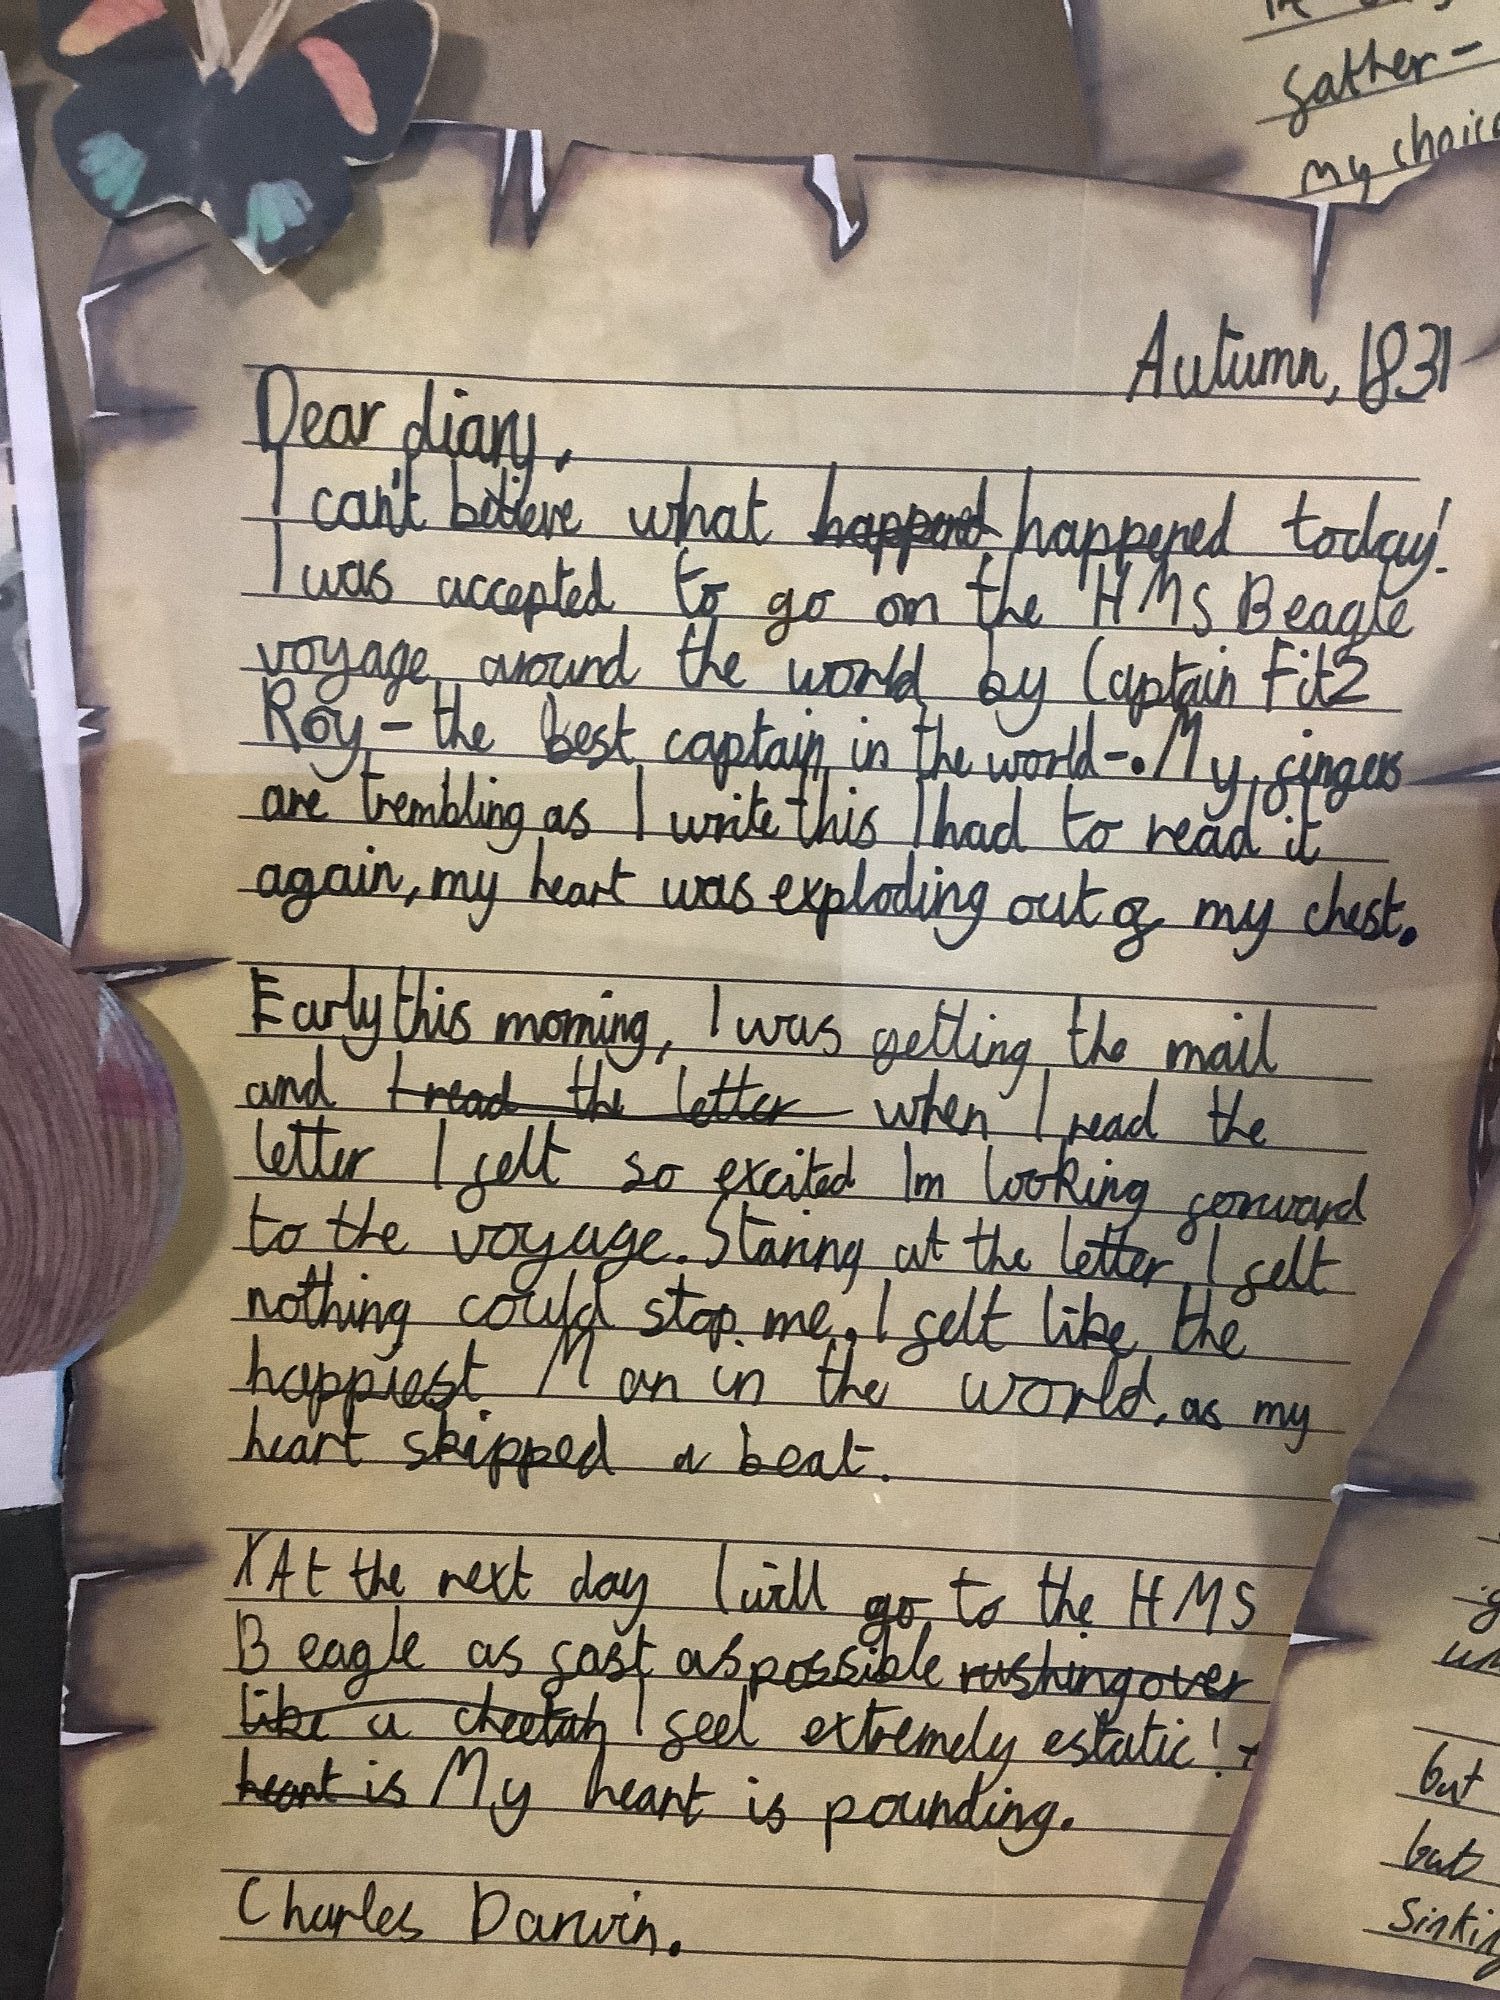 gather-
my choice
Autumn, 1831
Dear diary,
I can't believe what happened happened today!
I was accepted to go on the HMS Beagle
voyage around the world by Captain Fitz
Roy - the best captain in the world-. My fingers
are trembling as I write this I had to read it
again, my heart was exploding out of my chest.
Early this morning, I was getting the mail
and I read the letter when I read the
letter I felt so excited Im looking forward
to the voyage. Staring at the letter I felt
nothing could stop me. I felt like the
happiest Man in the world, as my
heart skipped a beat.
XAt the next day I will go to the HMS
Beagle as fast as possible rushing over
like a cheetah I feel extremely estatic!
heart is My heart is pounding.
Charles Darwin.
but
but